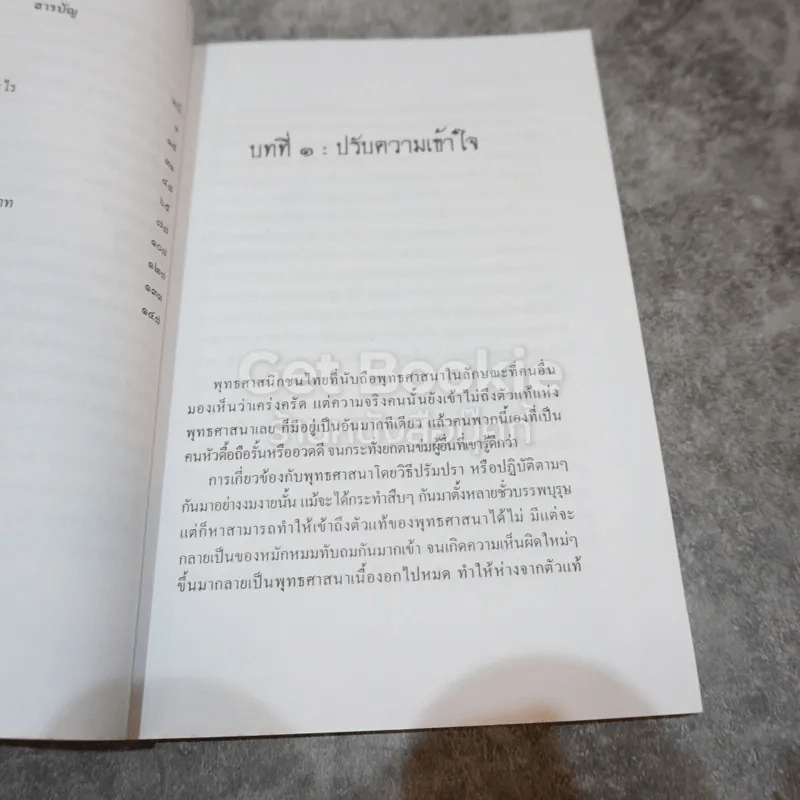 สารบัญ
๑๕
๓๑
๔๗
๖๕
๗๗
๑๐๗
๑๒๗
๑๓๑
๑๔๗
บทที่ ๑ : ปรับความเข้าใจ
พุทธศาสนิกชนไทยที่นับถือพุทธศาสนาในลักษณะที่คนอื่น
มองเห็นว่าเคร่งครัด แต่ความจริงคนนั้นยังเข้าไม่ถึงตัวแท้แห่ง
พุทธศาสนาเลย ก็มีอยู่เป็นอันมากทีเดียว แล้วคนพวกนี้เองที่เป็น
คนหัวดื้อถือรั้นหรืออวดดี จนกระทั่งยกตนข่มผู้อื่นที่เขารู้ดีกว่า
การเกี่ยวข้องกับพุทธศาสนาโดยวิธีปรัมปรา หรือปฏิบัติตามๆ
กันมาอย่างงมงายนั้น แม้จะได้กระทำสืบๆ กันมาตั้งหลายชั่วบรรพบุรุษ
แต่ก็หาสามารถทำให้เข้าถึงตัวแท้ของพุทธศาสนาได้ไม่ มีแต่จะ
กลายเป็นของหมักหมมทับถมกันมากเข้า จนเกิดความเห็นผิดใหม่ๆ
ขึ้นมากลายเป็นพุทธศาสนาเนื้องอกไปหมด ทำให้ห่างจากตัวแท้
Get Bookie